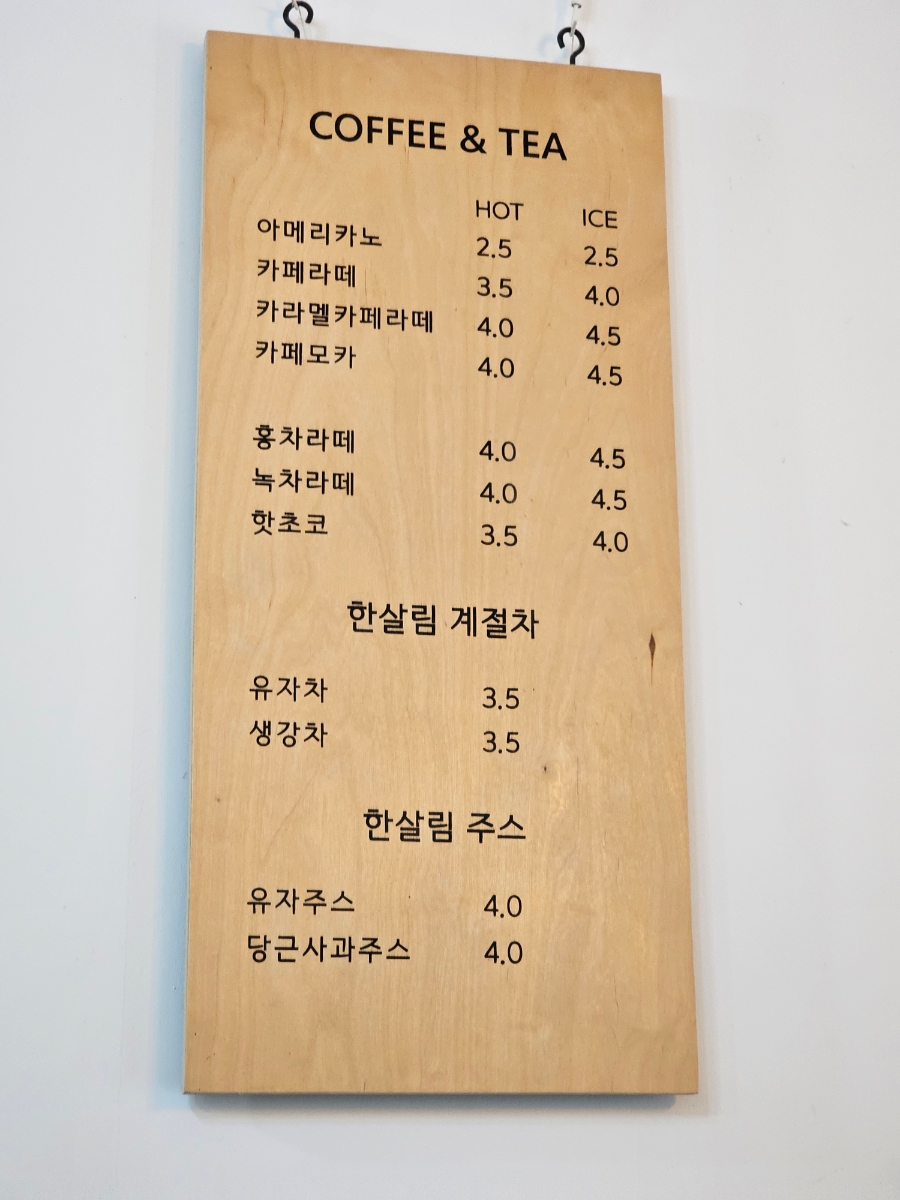 COFFEE & TEA
HOT ICE
아메리카노 2.5 2.5
카페라떼 3.5 4.0
카라멜카페라떼 4.0 4.5
카페모카 4.0 4.5
홍차라떼 4.0 4.5
녹차라떼 4.0 4.5
핫초코 3.5 4.0
한살림 계절차
유자차 3.5
생강차 3.5
한살림 주스
유자주스 4.0
당근사과주스 4.0